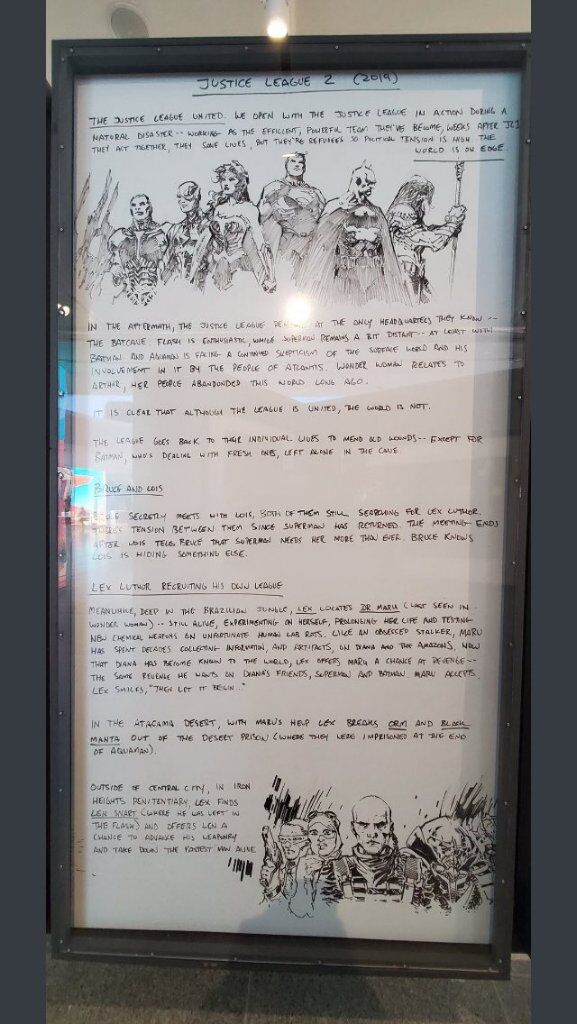 JUSTICE LEAGUE 2 (2019)
THE JUSTICE LEAGUE UNITED. WE OPEN WITH THE JUSTICE LEAGUE IN ACTION DURING A
NATURAL DISASTER -- WORKING AS THE EFFICIENT, POWERFUL TEAM THEY'VE BECOME, WEEKS AFTER JL1
THEY ACT TOGETHER, THEY SAVE LIVES, BUT THEY'RE REFUGEES SO POLITICAL TENSION IS HIGH. THE
WORLD IS ON EDGE.
IN THE AFTERMATH, THE JUSTICE LEAGUE AT THE ONLY HEADQUARTERS THEY KNOW --
THE BATCAVE. FLASH IS ENTHUSIASTIC, WHILE SUPERMAN REMAINS A BIT DISTANT -- AT LEAST WITH
BATMAN AND AQUAMAN IS FACING A CONTINUED SKEPTICISM OF THE SURFACE WORLD AND HIS
INVOLVEMENT IN IT BY THE PEOPLE OF ATLANTIS. WONDER WOMAN RELATES TO
ARTHUR, HER PEOPLE ABANDONDED THIS WORLD LONG AGO.
IT IS CLEAR THAT ALTHOUGH THE LEAGUE IS UNITED, THE WORLD IS NOT.
THE LEAGUE GOES BACK TO THEIR INDIVIDUAL LIVES TO MEND OLD WOUNDS -- EXCEPT FOR
BATMAN, WHO'S DEALING WITH FRESH ONES, LEFT ALONE IN THE CAVE.
BRUCE AND LOIS
BRUCE SECRETLY MEETS WITH LOIS, BOTH OF THEM STILL SEARCHING FOR LEX LUTHOR.
THERE'S TENSION BETWEEN THEM SINCE SUPERMAN HAS RETURNED. THE MEETING ENDS
AFTER LOIS TELLS BRUCE THAT SUPERMAN NEEDS HER MORE THAN EVER. BRUCE KNOWS
LOIS IS HIDING SOMETHING ELSE.
LEX LUTHOR RECRUITING HIS OWN LEAGUE
MEANWHILE, DEEP IN THE BRAZILIAN JUNGLE, LEX LOCATES DR MARU (LAST SEEN IN
WONDER WOMAN) -- STILL ALIVE, EXPERIMENTING ON HERSELF, PROLONGING HER LIFE AND TESTING
NEW CHEMICAL WEAPONS ON UNFORTUNATE HUMAN LAB RATS. LIKE AN OBSESSED STALKER, MARU
HAS SPENT DECADES COLLECTING INFORMATION, AND ARTIFACTS, ON DIANA AND THE AMAZONS, NOW
THAT DIANA HAS BECOME KNOWN TO THE WORLD, LEX OFFERS MARU A CHANCE AT REVENGE --
THE SAME REVENGE HE WANTS ON DIANA'S FRIENDS, SUPERMAN AND BATMAN. MARU ACCEPTS.
LEX SMILES, "THEN LET IT BEGIN.."
IN THE ATACAMA DESERT, WITH MARU'S HELP LEX BREAKS ORM AND BLACK
MANTA OUT OF THE DESERT PRISON (WHERE THEY WERE IMPRISONED AT THE END
OF AQUAMAN).
OUTSIDE OF CENTRAL CITY, IN IRON
HEIGHTS PENITENTIARY, LEX FINDS
LEN SNART (WHERE HE WAS LEFT IN
THE FLASH) AND OFFERS LEN A
CHANCE TO ADVANCE HIS WEAPONRY
AND TAKE DOWN THE FASTEST MAN ALIVE